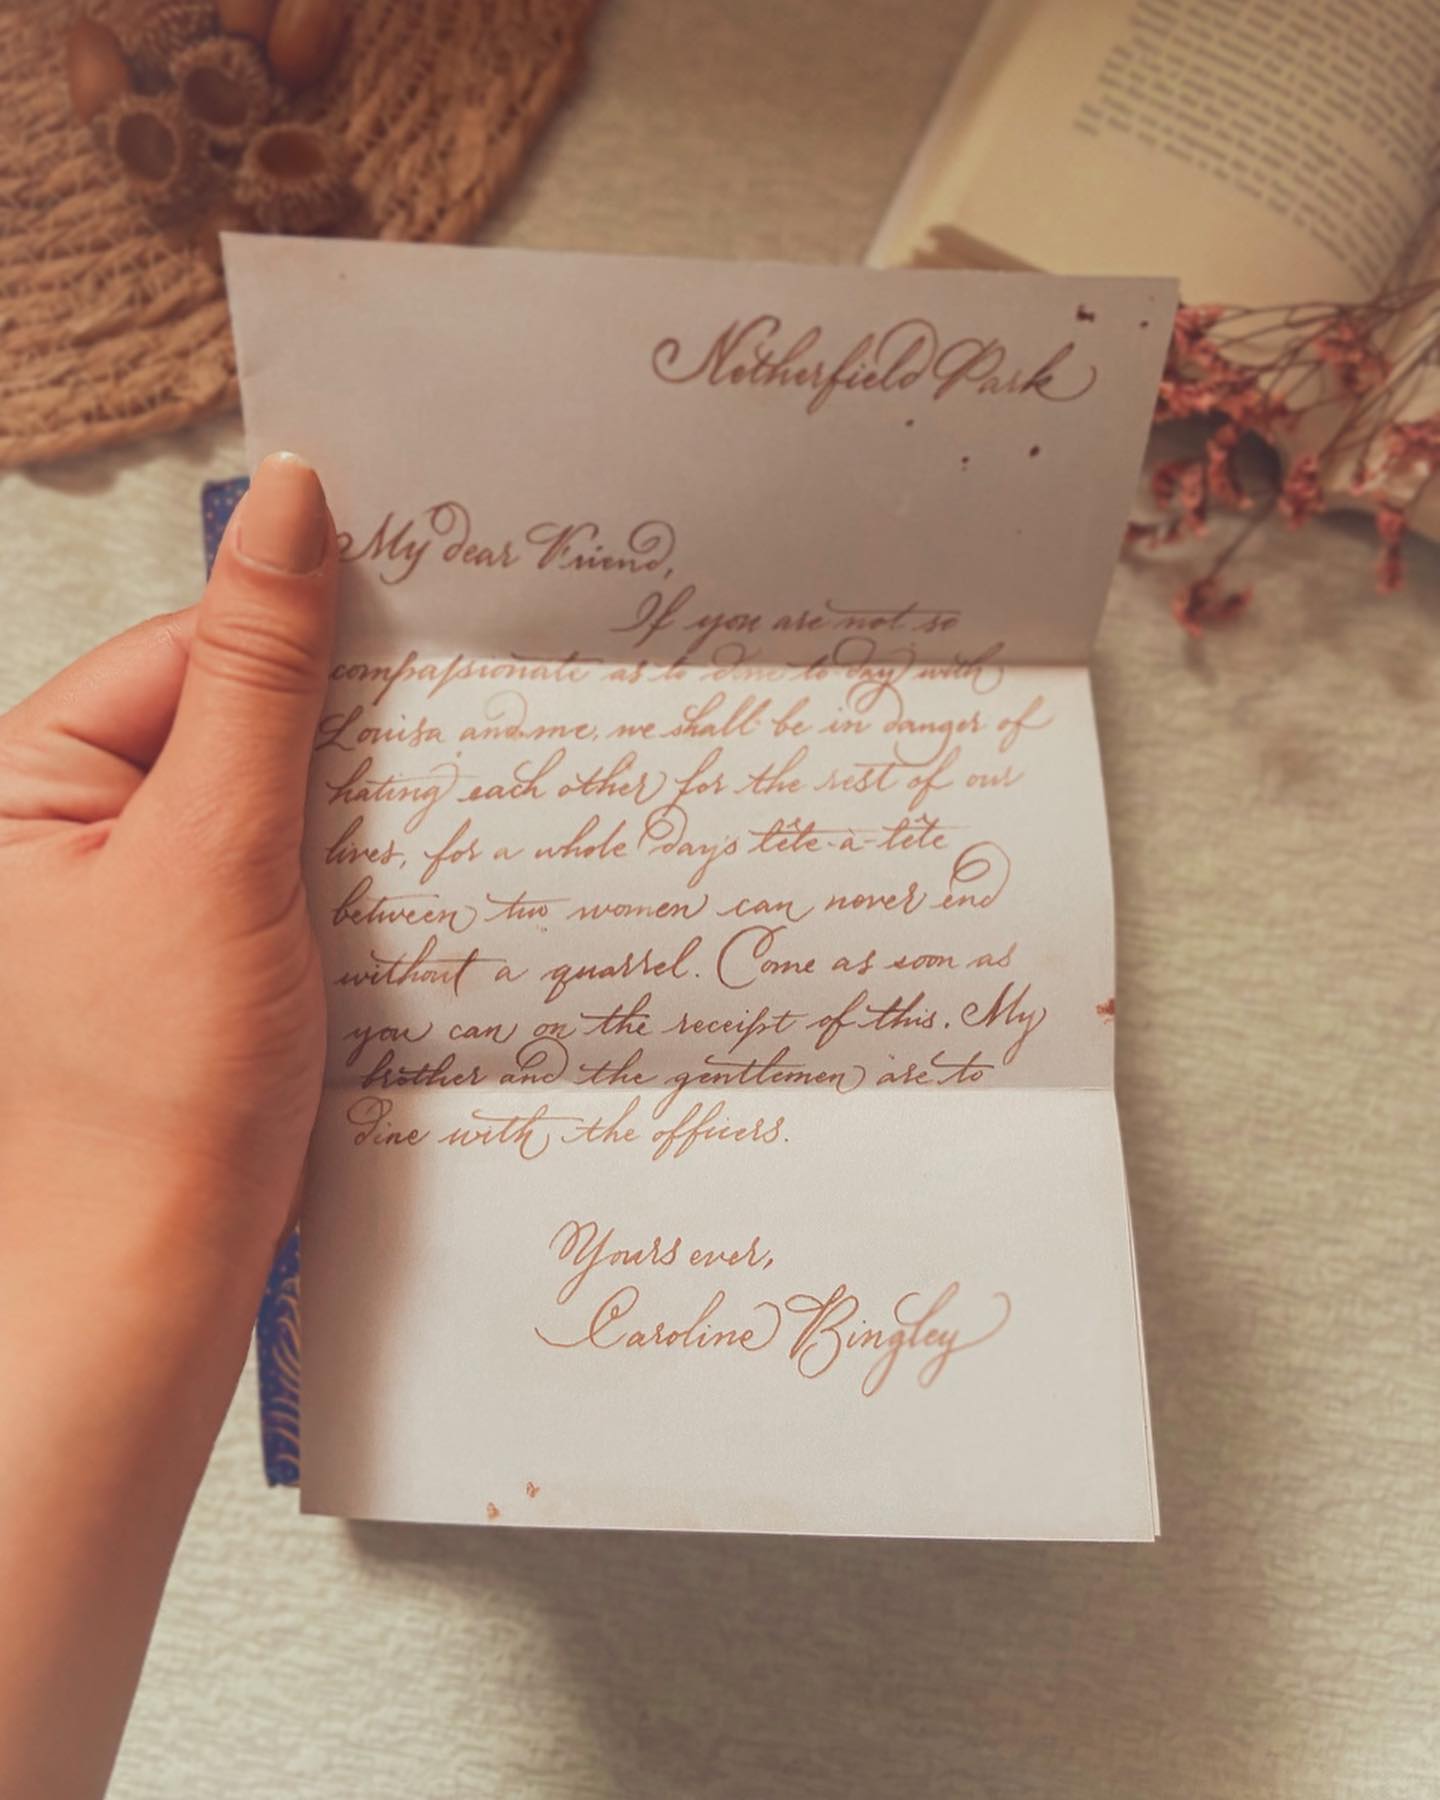 Netherfield Park
My dear Friend,
If you are not so
compassionate as to dine to day with
Louisa and me, we shall be in danger of
hating each other for the rest of our
lives, for a whole day's tête-à-tête
between two women can never end
without a quarrel. Come as soon as
you can on the receipt of this. My
brother and the gentlemen are to
dine with the officers.
Yours ever,
Caroline Bingley